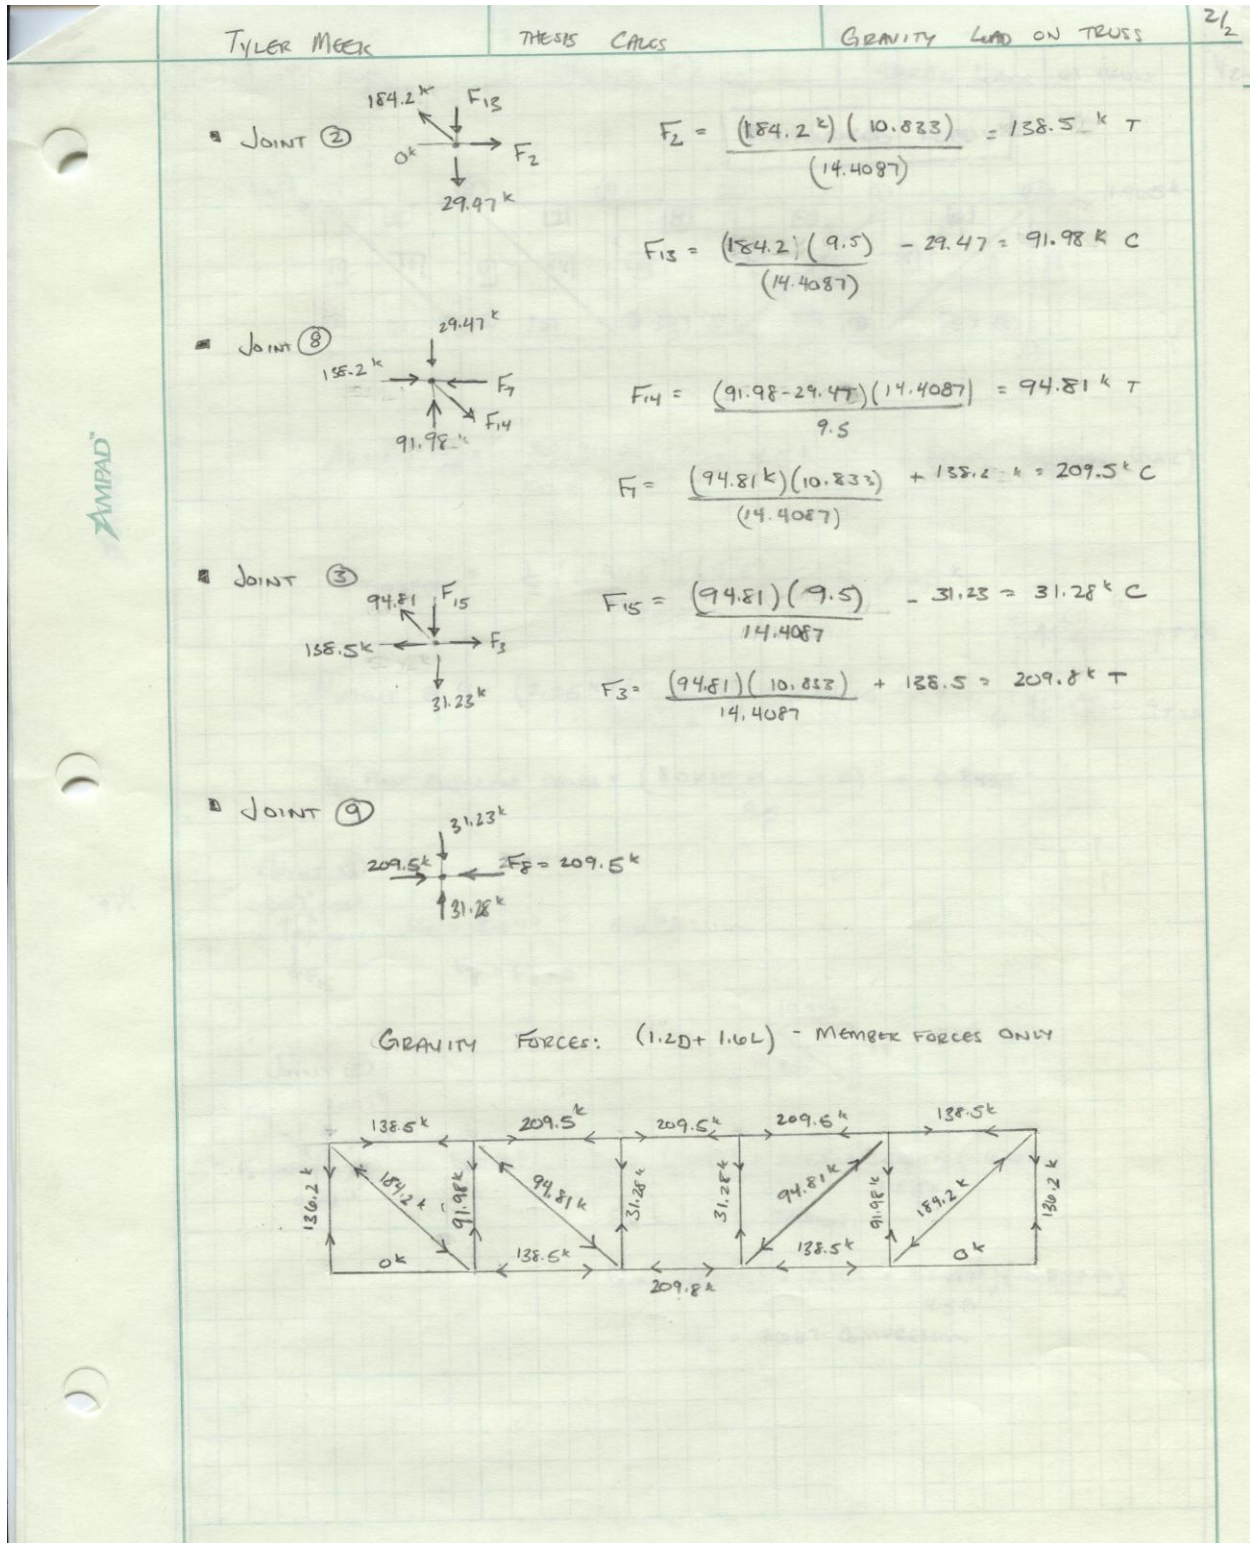 TYLER MEEK THESIS CALCS GRAVITY LOAD ON TRUSS 2/2
JOINT ②
184.2k F13
0k F2
29.47k
F2 = (184.2k)(10.833) = 138.5 k T
(14.4087)
F13 = (184.2)(9.5) - 29.47 = 91.98 k C
(14.4087)
JOINT ⑧
29.47k
138.2k F7
F14
91.98k
F14 = (91.98-29.47)(14.4087) = 94.81k T
9.5
F7 = (94.81k)(10.833) + 138.2 k = 209.5k C
(14.4087)
JOINT ③
94.81 F15
138.5k F3
31.23k
F15 = (94.81)(9.5) - 31.23 = 31.28k C
14.4087
F3 = (94.81)(10.833) + 138.5 = 209.8k T
14.4087
JOINT ⑨
31.23k
209.5k F8 = 209.5k
31.28k
GRAVITY FORCES: (1.2D + 1.6L) - MEMBER FORCES ONLY
138.5k 209.5k 209.5k 209.5k 138.5k
136.2k 184.2k 91.98k 94.81k 31.28k 31.28k 94.81k 91.98k 184.2k 136.2k
0k 138.5k 209.8k 138.5k 0k
AMPAD™